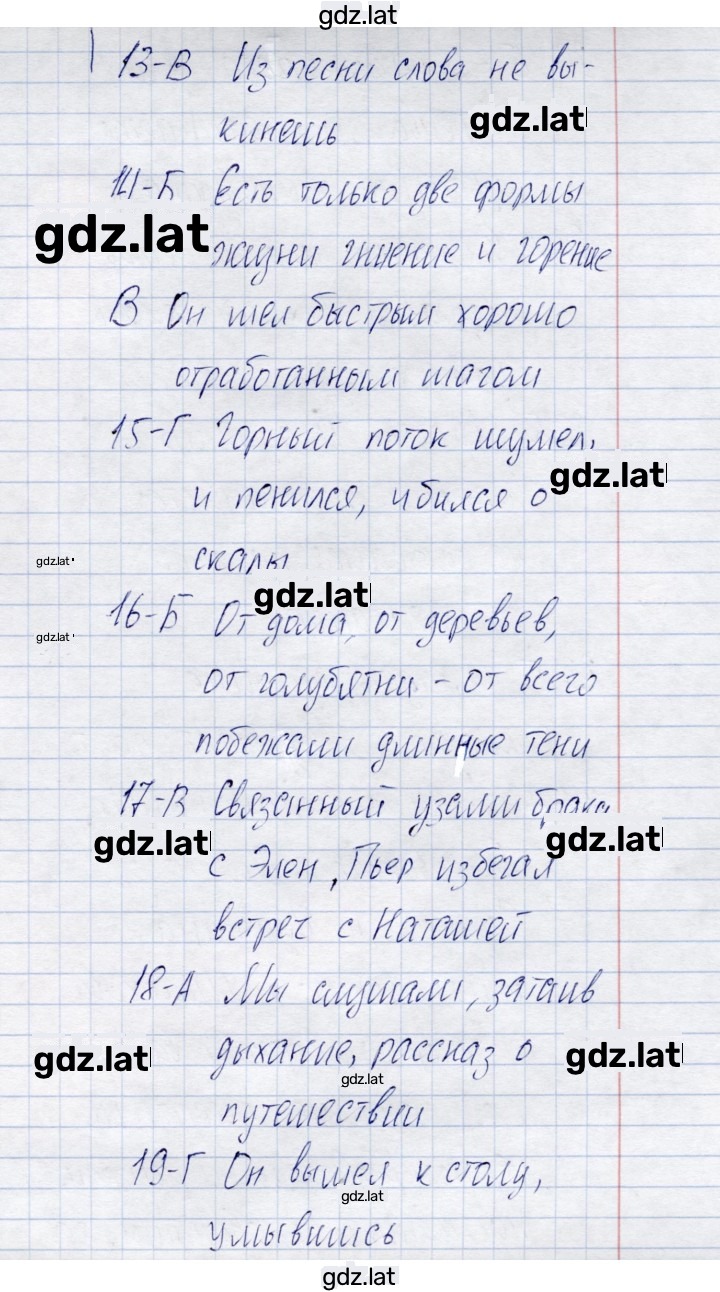 gdz.lat
13-В Из песни слова не вы-
кинешь
gdz.lat
14-Б Есть только две формы
gdz.lat
жизни гниение и горение
В Он шел быстрым хорошо
отработанным шагом
15-Г Горный поток шумел,
gdz.lat
и пенился, и бился о
gdz.lat
скалы
gdz.lat
16-Б От дома, от деревьев,
gdz.lat
от голубятни - от всего
побежали длинные тени
17-В Связанный узами брака
gdz.lat gdz.lat
с Элен, Пьер избегал
встреч с Наташей
18-А Мы слушали, затаив
gdz.lat gdz.lat
дыхание, рассказ о
gdz.lat
путешествии
19-Г Он вышел к столу,
gdz.lat
умывшись
gdz.lat